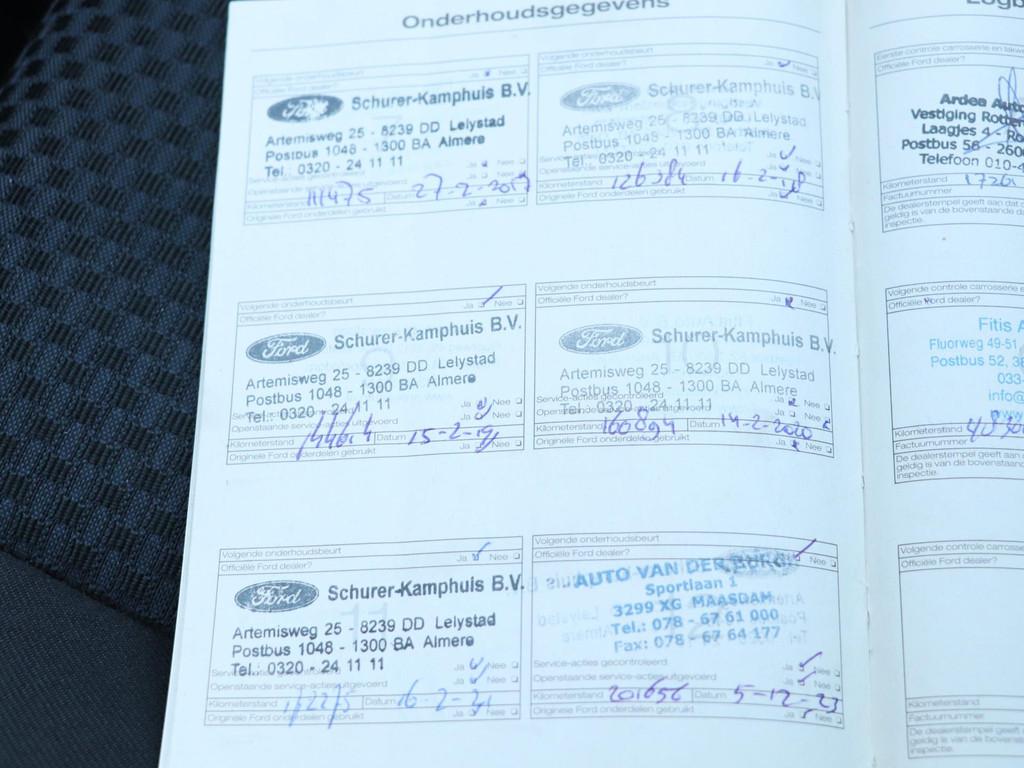 Onderhoudsgegevens
Volgende onderhoudsbeurt
Officiële Ford dealer? Ja Nee
Ford Schurer-Kamphuis B.V.
Artemisweg 25 - 8239 DD Lelystad
Postbus 1048 - 1300 BA Almere
Tel. 0320 - 24 11 11
Ja Nee
Openstaande service-acties uitgevoerd
Kilometerstand 111475 Datum 27-2-2017
Originele Ford onderdelen gebruikt Ja Nee
Volgende onderhoudsbeurt
Officiële Ford dealer? Ja Nee
Ford Schurer-Kamphuis B.V.
Artemisweg 25 - 8239 DD Lelystad
Postbus 1048 - 1300 BA Almere
Tel.: 0320 - 24 11 11
Ja Nee
Kilometerstand 126384 Datum 16-2-18
Originele Ford onderdelen gebruikt Ja Nee
Volgende onderhoudsbeurt
Officiële Ford dealer? Ja Nee
Ford Schurer-Kamphuis B.V.
Artemisweg 25 - 8239 DD Lelystad
Postbus 1048 - 1300 BA Almere
Tel.: 0320 - 24 11 11
Ja Nee
Openstaande service-acties uitgevoerd Ja Nee
Kilometerstand Datum 15-2-19
Originele Ford onderdelen gebruikt Ja Nee
Volgende onderhoudsbeurt
Officiële Ford dealer? Ja Nee
Ford Schurer-Kamphuis B.V.
Artemisweg 25 - 8239 DD Lelystad
Postbus 1048 - 1300 BA Almere
Service-acties gecontroleerd
Tel.: 0320 - 24 11 11 Ja Nee
Kilometerstand 160894 Datum 14-2-2020
Originele Ford onderdelen gebruikt Ja Nee
Volgende onderhoudsbeurt
Officiële Ford dealer? Ja Nee
Ford Schurer-Kamphuis B.V.
Artemisweg 25 - 8239 DD Lelystad
Postbus 1048 - 1300 BA Almere
Tel.: 0320 - 24 11 11
Service-acties gecontroleerd Ja Nee
Openstaande service-acties uitgevoerd Ja Nee
Kilometerstand Datum 16-2-21
Originele Ford onderdelen gebruikt Ja Nee
Volgende onderhoudsbeurt
Officiële Ford dealer? Ja Nee
AUTO VAN DER BURG
Sportlaan 1
3299 XG MAASDAM
Tel.: 078 - 67 61 000
Fax: 078 - 67 64 177
Service-acties gecontroleerd Ja Nee
Openstaande service-acties uitgevoerd Ja Nee
Kilometerstand 201656 Datum 5-12-23
Originele Ford onderdelen gebruikt Ja Nee
Eerste controle carrosserie en lakwe
Officiële Ford dealer?
Ardea Aut
Vestiging Rotter
Laagjes 4 - Ro
Postbus 56 - 260
Telefoon 010-4
Kilometerstand
Factuurnummer
De dealerstempel geeft aan dat
geldig is van de bovenstaande da
inspectie.
Volgende controle carrosserie e
Officiële Ford dealer?
Fitis A
Fluorweg 49-51
Postbus 52, 3
033-
info@
www
Kilometerstand
Factuurnummer
De dealerstempel geeft aan
geldig is van de bovenstaand
inspectie.
Volgende controle carrosse
Officiële Ford dealer?
Kilometerstand
Factuurnummer
De dealerstempel geeft
geldig is van de bovenst
inspectie.